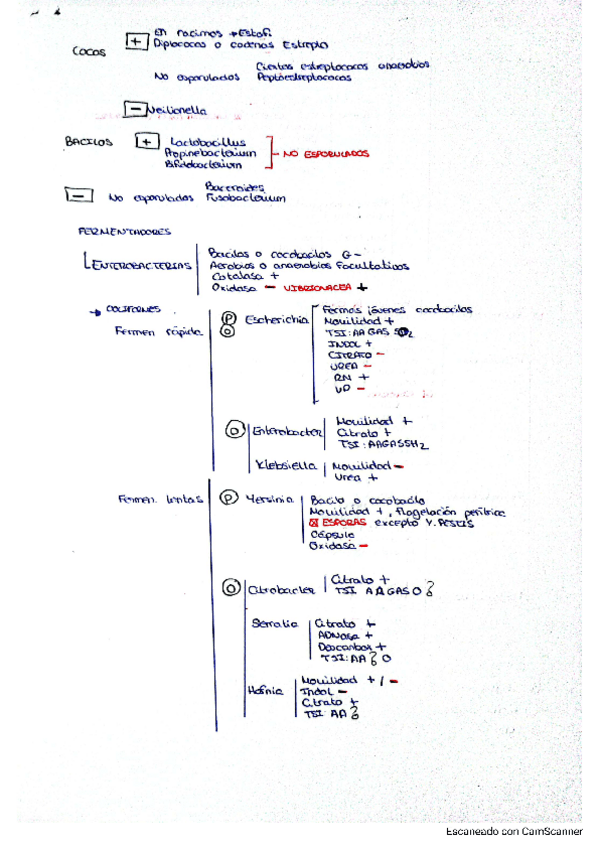 En racimos → Estafi
COCOS + Diplococos o cadenas Estrepto
Ciertos estreptococos anaerobios
No esporulados Peptoestreptococos
- Veillonella
BACILOS + Lactobacillus
Propinebacterium NO ESPORULADOS
Bifidobacterium
- Bacteroides
No esporulados Fusobacterium
FERMENTADORES
Bacilos o cocobacilos G-
ENTEROBACTERIAS Aerobios o anaerobios facultativos
Catalasa +
Oxidasa - VIBRIONACEA +
→ COLIFORMES
Fermen rápida P O Escherichia
Formas jóvenes cocobacilos
Movilidad +
TSI: AA GAS
INDOL +
CITRATO -
UREA -
RN +
VP -
O Enterobacter
Movilidad +
Citrato +
TSI: AAGASSH2
Klebsiella Movilidad -
Urea +
Fermen. lentas P Yersinia
Bacilo o cocobacilo
Movilidad +, flagelación perítrica
ESPORAS excepto Y. PESTIS
Cápsula
Oxidasa -
O Citrobacter Citrato +
TSI AAGASO
Serratia Citrato +
ADNasa +
Descarbox +
TSI: AA O
Hafnia Movilidad + / -
Indol -
Citrato +
TSI AA
Escaneado con CamScanner